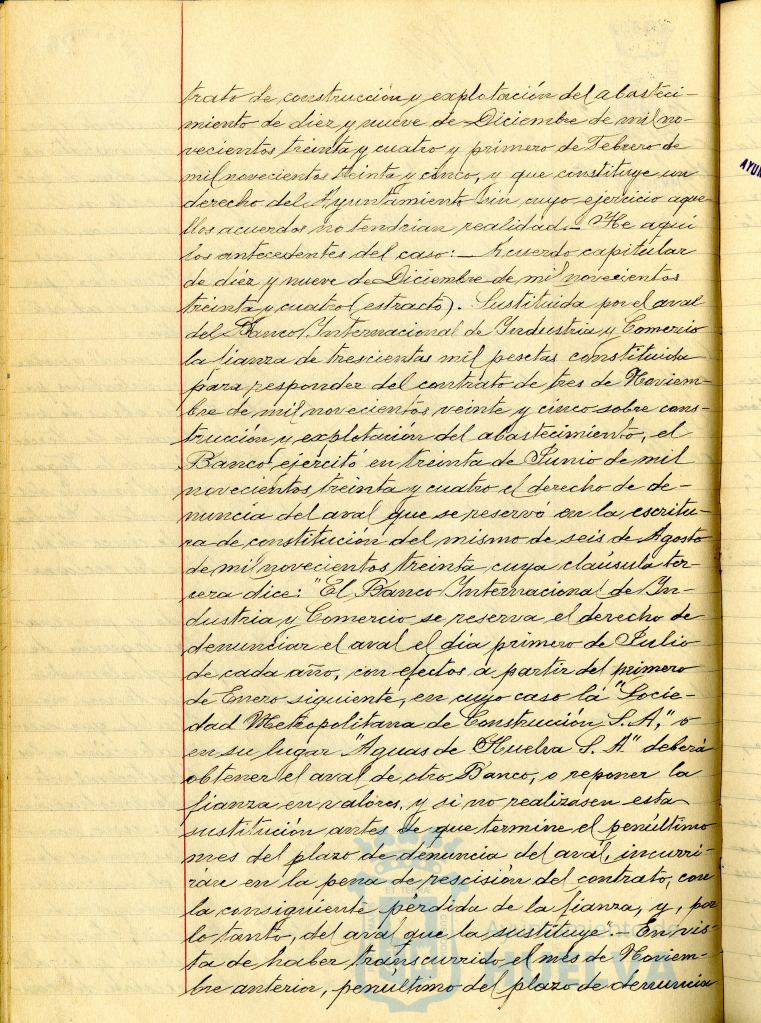 trato de construcción y explotación del abasteci-
miento de diez y nueve de Diciembre de mil no-
vecientos treinta y cuatro y primero de Febrero de
mil novecientos treinta y cinco, y que constituye un
derecho del Ayuntamiento sin cuyo ejercicio aque-
llos acuerdos no tendrian realidad.- He aquí
los antecedentes del caso:- Acuerdo capitular
de diez y nueve de Diciembre de mil novecientos
treinta y cuatro (extracto). Sustituida por el aval
del Banco Internacional de Industria y Comercio
la fianza de trescientas mil pesetas constituida
para responder del contrato de tres de Noviem-
bre de mil novecientos veinte y cinco sobre cons-
trucción y explotación del abastecimiento, el
Banco ejercitó en treinta de Junio de mil
novecientos treinta y cuatro el derecho de de-
nuncia del aval que se reservó en la escritu-
ra de constitución del mismo de seis de Agosto
de mil novecientos treinta cuya claúsula ter-
cera dice: "El Banco Internacional de In-
dustria y Comercio se reserva el derecho de
denunciar el aval el día primero de Julio
de cada año, con efectos a partir del primero
de Enero siguiente, en cuyo caso la "Socie-
dad Metropolitana de Construcción S.A." o
en su lugar "Aguas de Huelva S.A." deberá
obtener el aval de otro Banco, o reponer la
fianza en valores, y si no realizasen esta
sustitución antes de que termine el penúltimo
mes del plazo de denuncia del aval, incurri-
rán en la pena de rescisión del contrato, con
la consiguiente pérdida de la fianza, y, por
lo tanto, del aval que la sustituye.- En vis-
ta de haber transcurrido el mes de Noviem-
bre anterior, penúltimo del plazo de denuncia
HUELVA
AYUN